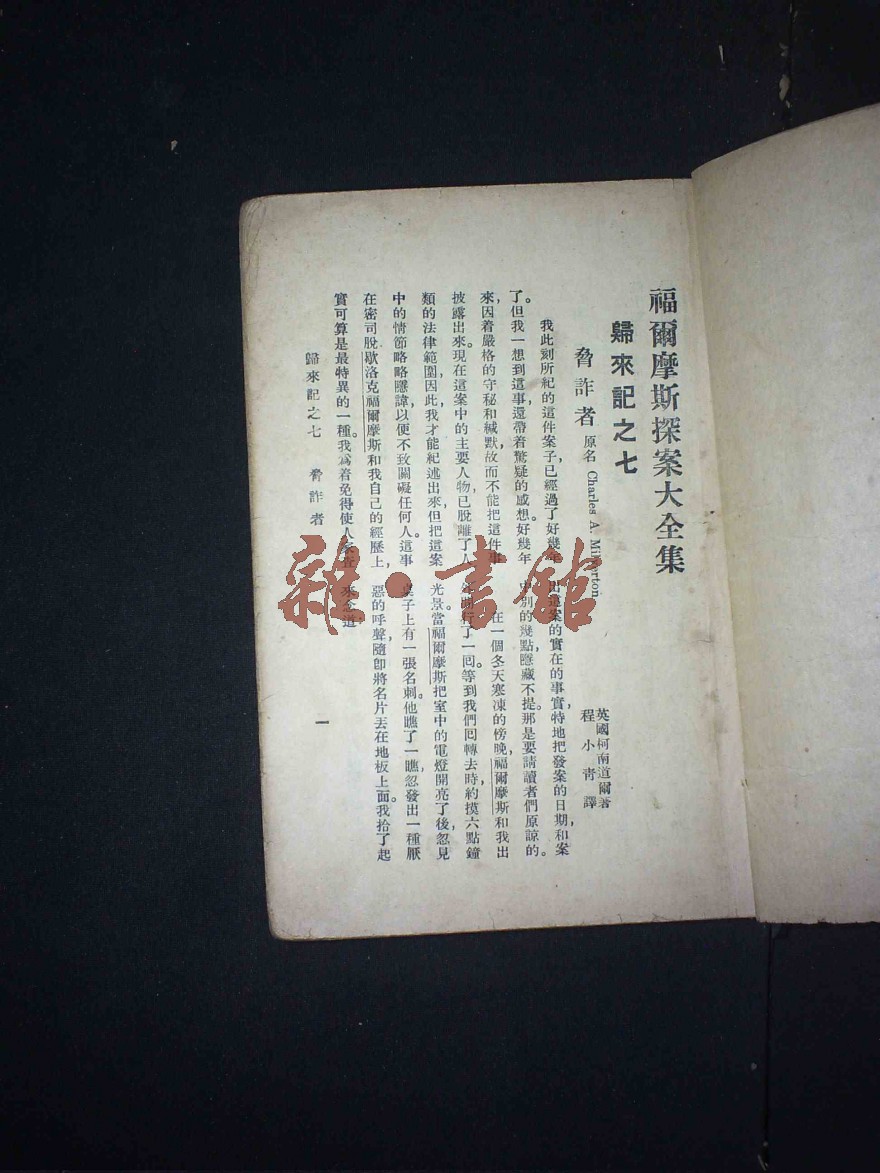 福爾摩斯探案大全集
歸來記之七
脅詐者 原名 Charles A. Milverton
英國柯南道爾著
程小青譯
我此刻所紀的這件案子,已經過了好幾年
了。但我一想到這事,還帶着驚疑的感想。好幾年
來,因着嚴格的守秘和緘默,故而不能把這件事
披露出來。現在這案中的主要人物,已脫離了人
類的法律範圍,因此,我才能紀述出來。但把這案
中的情節略略隱諱,以便不致關礙任何人。這事
在密司脫歇洛克福爾摩斯和我自己的經歷上,
實可算是最特異的一種。我爲着免得使人在
出這案的實在的事實,特地把發案的日期和案
中別的幾點隱藏不提。那是要請讀者們原諒的。
在一個冬天寒凍的傍晚,福爾摩斯和我出
行了一回。等到我們回轉去時,約摸六點鐘
光景。當福爾摩斯把室中的電燈開亮了後,忽見
桌子上有一張名刺。他瞧了一瞧,忽發出一種厭
惡的呼聲,隨卽將名片丟在地板上面。我拾了起
來念道:
歸來記之七 脅詐者
一
雜·書館